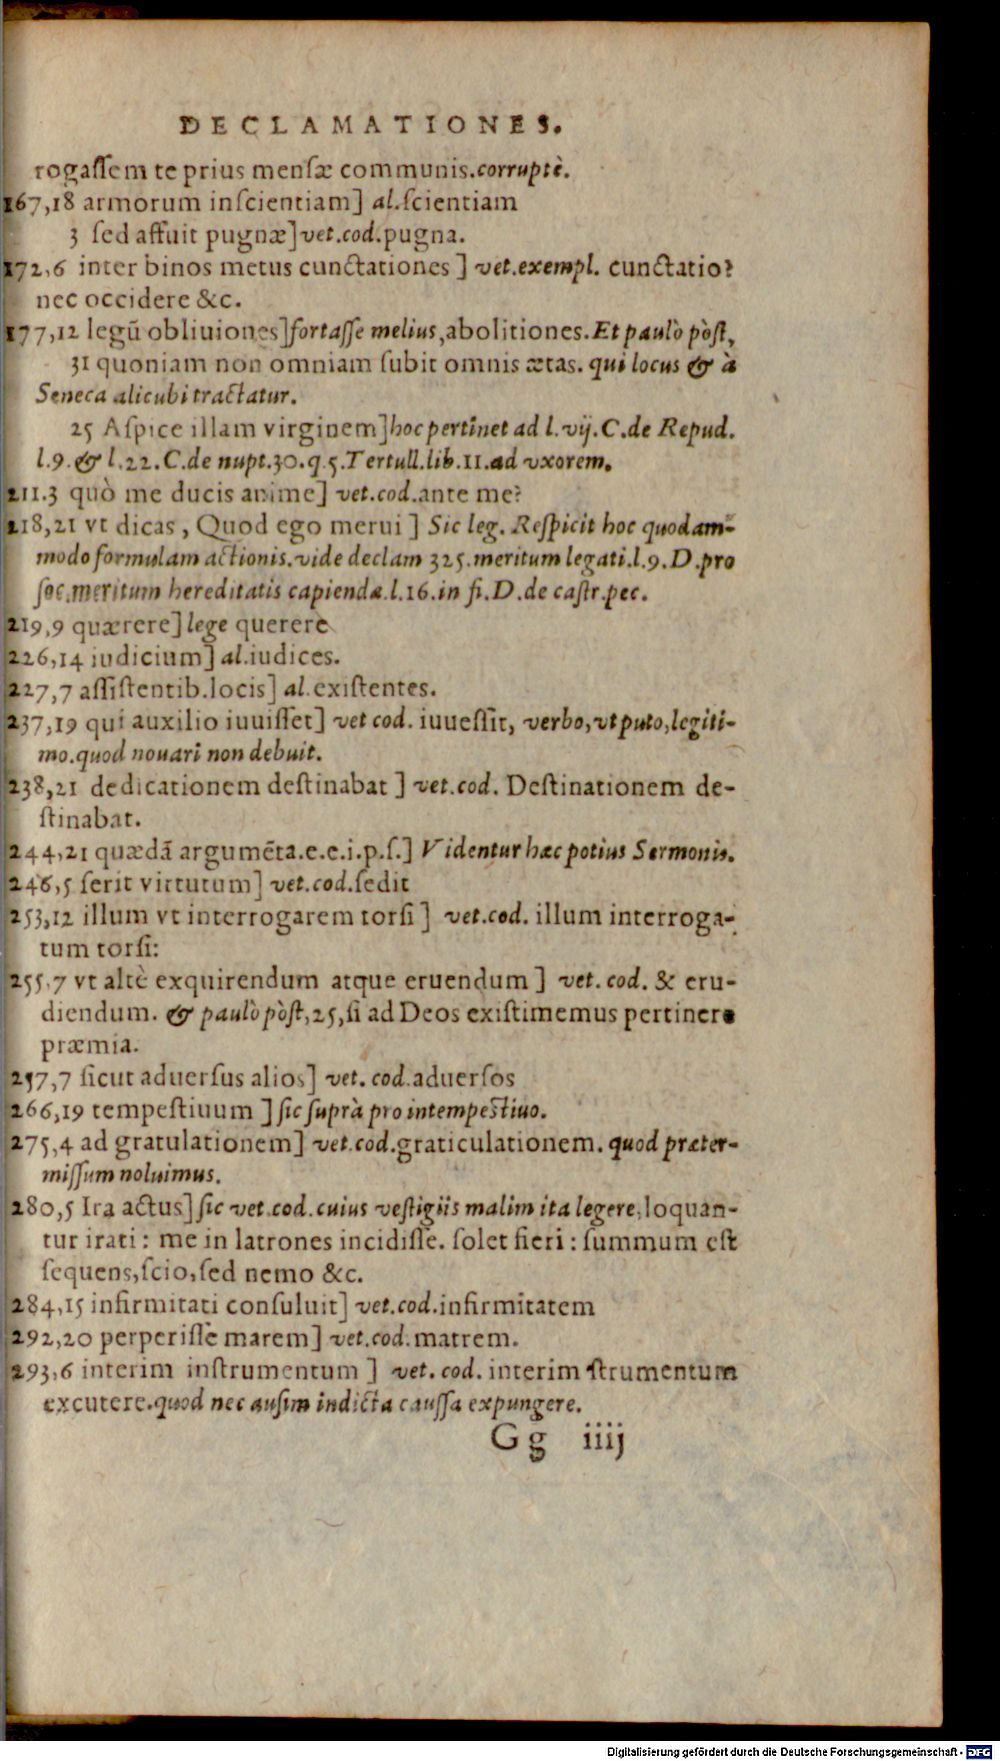 DECLAMATIONES.
rogaſſem te prius menſæ communis. corruptè.
167,18 armorum inſcientiam] al. ſcientiam
3 ſed affuit pugnæ] vet. cod. pugna.
172,6 inter binos metus cunctationes] vet. exempl. cunctatio?
nec occidere &c.
177,12 legū obliuiones] fortaſſe melius, abolitiones. Et paulò pòſt,
31 quoniam non omniam ſubit omnis ætas. qui locus & à
Seneca alicubi tractatur.
25 Aſpice illam virginem] hoc pertinet ad l. vij. C. de Repud.
l.9. & l.22. C. de nupt. 30. q. 5. Tertull. lib. 11. ad vxorem.
211.3 quò me ducis anime] vet. cod. ante me?
218,21 vt dicas, Quod ego merui] Sic leg. Reſpicit hoc quodam-
modo formulam actionis. vide declam 325. meritum legati. l.9. D. pro
ſoc. meritum hereditatis capiendæ. l.16. in fi. D. de caſtr. pec.
219,9 quærere] lege querere
226,14 iudicium] al. iudices.
227,7 aſſiſtentib. locis] al. exiſtentes.
237,19 qui auxilio iuuiſſet] vet cod. iuueſſit, verbo, vt puto, legiti-
mo. quod nouari non debuit.
238,21 dedicationem deſtinabat] vet. cod. Deſtinationem de-
ſtinabat.
244,21 quædā argumēta. e. e. i. p. ſ.] Videntur hæc potius Sermonis.
246,5 ſerit virtutum] vet. cod. ſedit
253,12 illum vt interrogarem torſi] vet. cod. illum interroga-
tum torſi:
255,7 vt altè exquirendum atque eruendum] vet. cod. & eru-
diendum. & paulò pòſt, 25, ſi ad Deos exiſtimemus pertinere
præmia.
257,7 ſicut aduerſus alios] vet. cod. aduerſos
266,19 tempeſtiuum] ſic ſuprà pro intempeſtiuo.
275,4 ad gratulationem] vet. cod. graticulationem. quod præter-
miſſum noluimus.
280,5 Ira actus] ſic vet. cod. cuius veſtigiis malim ita legere, loquan-
tur irati: me in latrones incidiſſe. ſolet fieri: ſummum eſt
ſequens, ſcio, ſed nemo &c.
284,15 infirmitati conſuluit] vet. cod. infirmitatem
292,20 perperiſſe marem] vet. cod. matrem.
293,6 interim inſtrumentum] vet. cod. interim ſtrumentum
excutere. quod nec auſim indicta cauſſa expungere.
Gg iiij
Digitalisierung gefördert durch die Deutsche Forschungsgemeinschaft - DFG